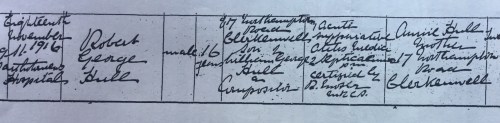 Eighteenth
November
1916
Hospital
Robert
George
Hull
male
16
years
17 Northampton
Road
Clerkenwell
Son of
William George
Hull
a
Compositor
Acute
suppurative
Otitis Media
Septicaemia
certified by
Annie Hull
Mother
17 Northampton
Road
Clerkenwell